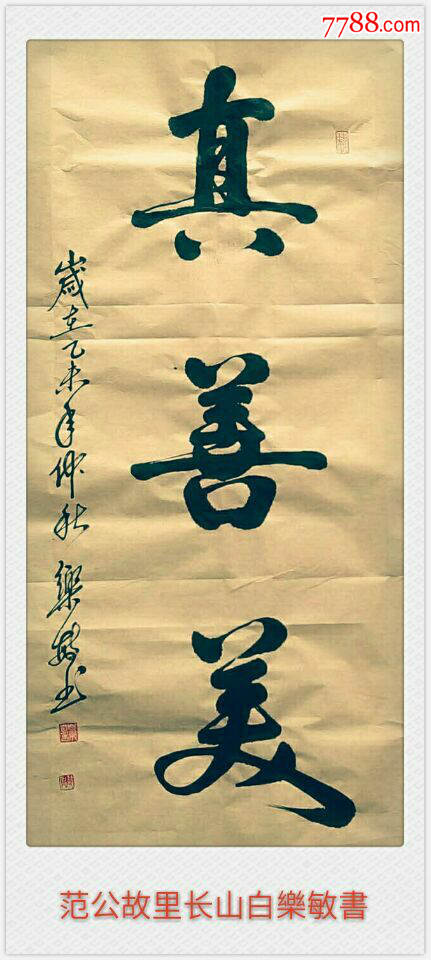 7788.com
真
善
美
歲在乙未年仲秋 樂敏书
范公故里长山白樂敏書